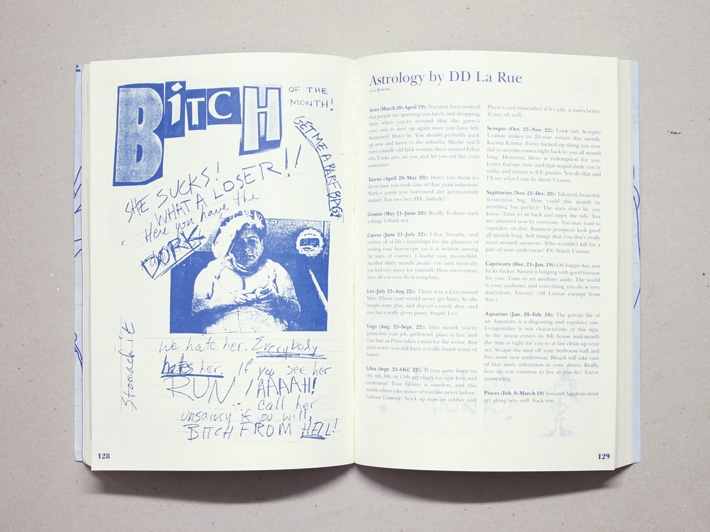 BitCH
OF THE
MONTH!
GET ME A BARF BAG!
SHE SUCKS!
WHAT A LOSER!!
Here you have the
DORK
Stomach it
we hate her. Everybody
hates her. If you see her
RUN! AAAAH!
call her
unsavory if you will
BITCH FROM HELL!
128
Astrology by DD La Rue
Aries (March 20–April 19): You may have noticed
that people are ignoring you lately and dropping
hints when you're around that the party's
over, only to start up again once you have left.
Surprised? Don't be. You should probably pack
up now and move to the suburbs. Maybe you'll
meet a kindly old lock
who'll take pity on you and let you eat her cust
sometimes.
Taurus (April 20–May 20): Don't you think it's
about time you took care of that yeast infection?
Merle's pants you borrowed are permanently
stained. You owe her $$$. Asshole!
Gemini (May 21–June 20): Really. Is there such
a thing? I think not.
Cancer (June 21–July 22): I live, breathe, and
endure all of life's hardships for the pleasure of
voicing your horoscope (as it is written among
the stars, of course). I loathe you, moonchild.
Another shitty month awaits you and naturally
you feel very sorry for yourself. How convenient,
since all you ever do is complain.
Leo (July 23–Aug 22): There was a Leo named
Mary whose coat would never get hairy. So she
bought some glue, and shaved a smelly shoe, and
now has a really gross pussy. Stupid Leo.
Virgo (Aug. 23–Sept. 22): This month you're
gonna lose your job, girlfriend, place to live, and
your hair as Pluto takes a turn for the worse. But
don't worry, you still have a really dumb sense of
humor.
Libra (Sept. 23–Oct. 22): If you were born on
the 4th, 8th, or 15th get ready for new look and
excitement! Your beauty is timeless, and this
month others take notice of you like never before.
Ooooo Gummy! Stock up now on rubber and
Pisces, and remember, if it's safe, it tastes better.
If not, oh well.
Scorpio (Oct. 23–Nov. 22): Look out, Scorpio!
Uranus makes its 29-year return this month.
Karima Karma. Every fucked-up thing you ever
did to anyone comes right back to you all month
long. However, there is redemption for you.
Leave Europe now (and that stupid dude you're
with), and return to S.F. pronto. You do that and
I'll see what I can do about Uranus.
Sagittarius (Nov. 22–Dec. 20): Talented, beautiful,
mysterious Sag. How could this month be
anything but perfect? The stars don't lie, you
know. Time to sit back and enjoy the ride. You
are admired now by everyone. You may want to
capitalize on this. Business prospects look good
all month long. Sell things that you don't really
want around anymore. Who wouldn't kill for a
pair of your underwear? P.S. Watch Uranus.
Capricorn (Dec. 21–Jan. 19): Oh happy day, you
lucky fucker. Saturn is bulging with good fortune
for you. Time to set modesty aside. The world
is your audience and everything you do is very
marvelous. "Encore" (All Leaves exempt from
this.)
Aquarius (Jan. 20–Feb. 18): The private life of
an Aquarius is a disgusting and repulsive one.
Congeniality is not characteristic of this sign.
As the moon enters its 8th house mid-month
the time is right for you to at last clean up your
act. Scrape the snot off your bedroom wall and
buy some new underwear. Bleach will take care
of that nasty infestation in your shorts. Really,
how do you continue to live as you do? You're
something.
Pisces (Feb. 9–March 19) You and Aquarius must
get along very well. Fuck you.
129